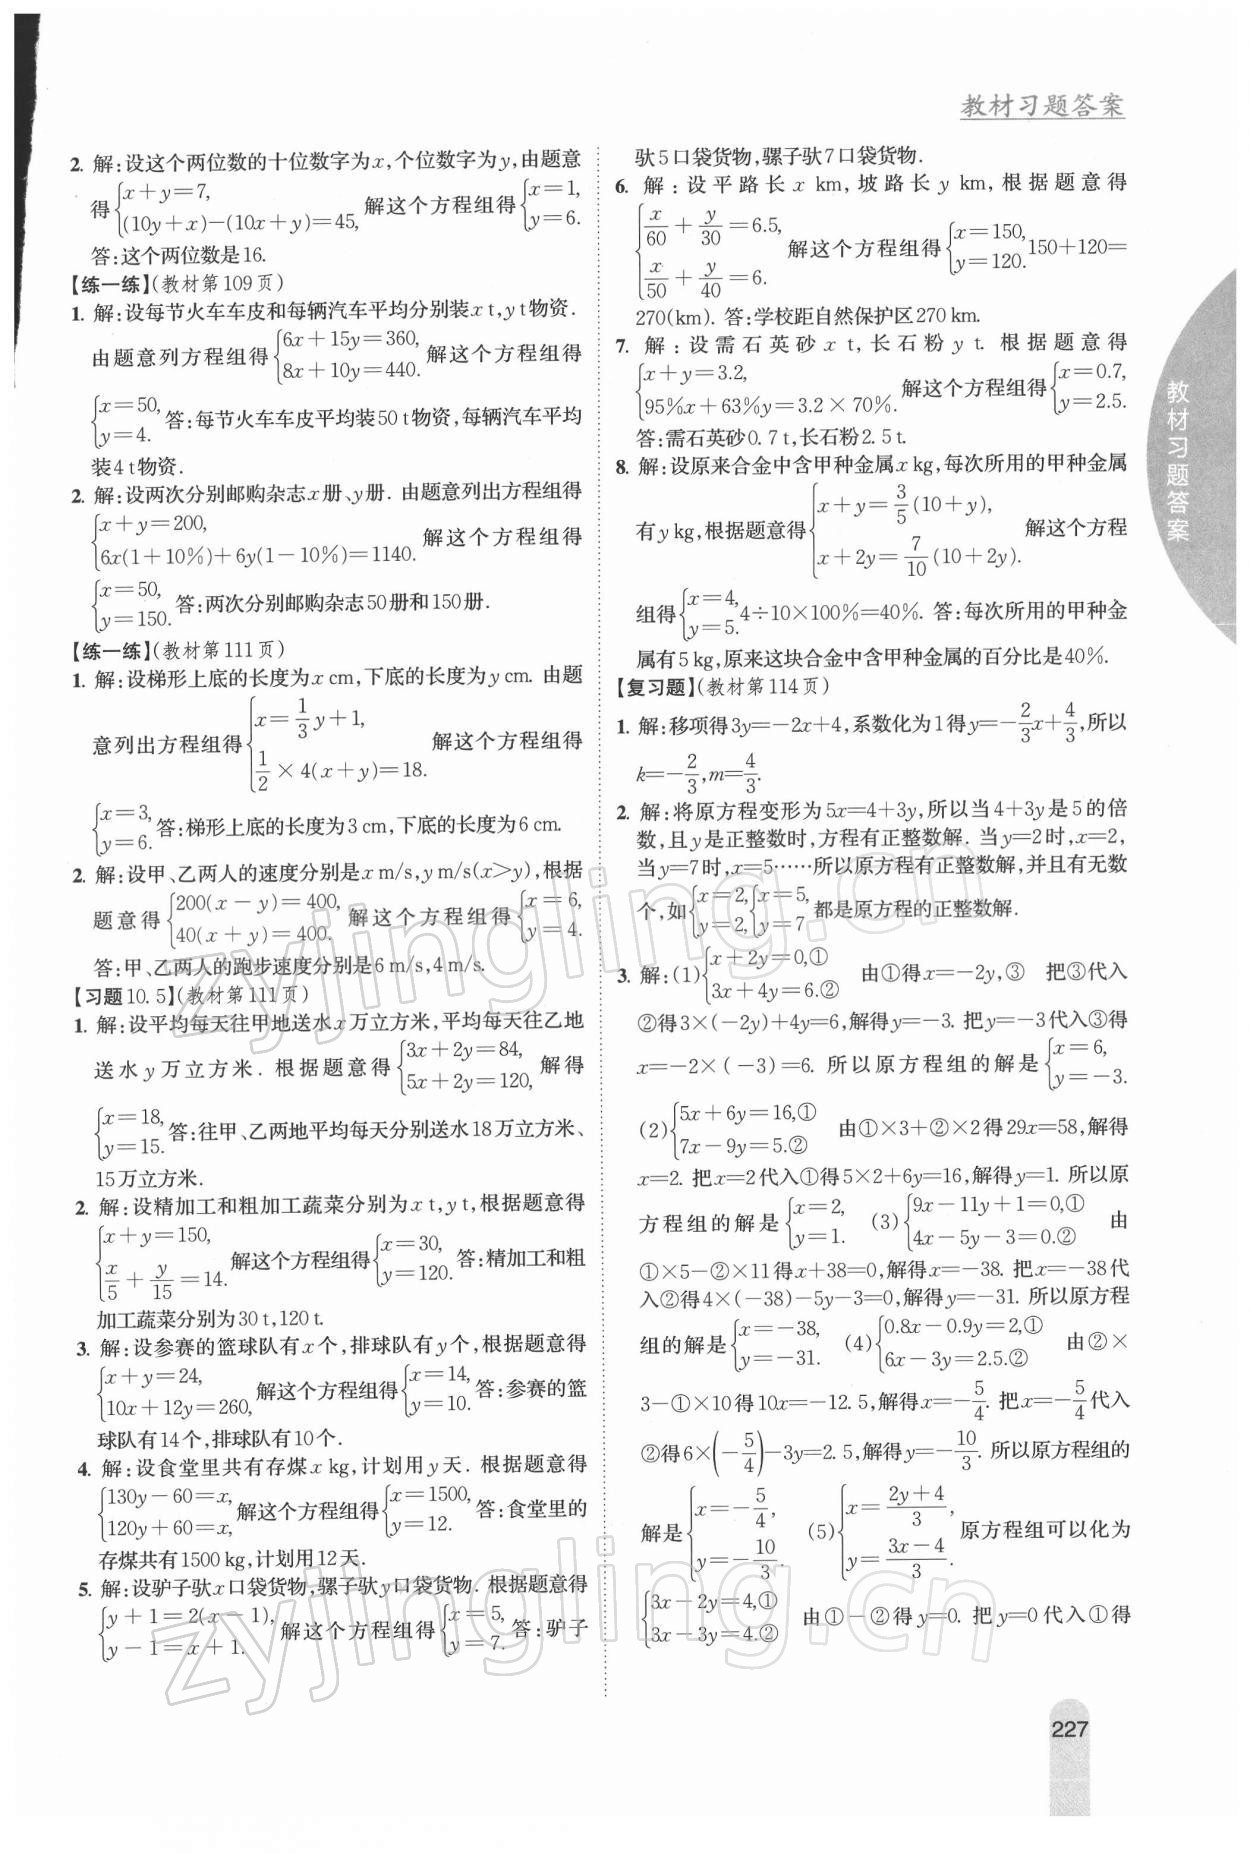 教材习题答案
2. 解:设这个两位数的十位数字为x,个位数字为y,由题意
得{x+y=7, (10y+x)-(10x+y)=45, 解这个方程组得{x=1, y=6.
答:这个两位数是16.
【练一练】(教材第109页)
1. 解:设每节火车车皮和每辆汽车平均分别装x t,y t物资.
由题意列方程组得{6x+15y=360, 8x+10y=440. 解这个方程组得
{x=50, y=4. 答:每节火车车皮平均装50 t物资,每辆汽车平均
装4 t物资.
2. 解:设两次分别邮购杂志x册、y册. 由题意列出方程组得
{x+y=200, 6x(1+10%)+6y(1-10%)=1140. 解这个方程组得
{x=50, y=150. 答:两次分别邮购杂志50册和150册.
【练一练】(教材第111页)
1. 解:设梯形上底的长度为x cm,下底的长度为y cm. 由题
意列出方程组得{x=1/3 y+1, 1/2×4(x+y)=18. 解这个方程组得
{x=3, y=6. 答:梯形上底的长度为3 cm,下底的长度为6 cm.
2. 解:设甲、乙两人的速度分别是x m/s,y m/s(x>y),根据
题意得{200(x-y)=400, 40(x+y)=400. 解这个方程组得{x=6, y=4.
答:甲、乙两人的跑步速度分别是6 m/s,4 m/s.
【习题10.5】(教材第111页)
1. 解:设平均每天往甲地送水x万立方米,平均每天往乙地
送水y万立方米. 根据题意得{3x+2y=84, 5x+2y=120, 解得
{x=18, y=15. 答:往甲、乙两地平均每天分别送水18万立方米、
15万立方米.
2. 解:设精加工和粗加工蔬菜分别为x t,y t,根据题意得
{x+y=150, x/5+y/15=14. 解这个方程组得{x=30, y=120. 答:精加工和粗
加工蔬菜分别为30 t,120 t.
3. 解:设参赛的篮球队有x个,排球队有y个,根据题意得
{x+y=24, 10x+12y=260, 解这个方程组得{x=14, y=10. 答:参赛的篮
球队有14个,排球队有10个.
4. 解:设食堂里共有存煤x kg,计划用y天. 根据题意得
{130y-60=x, 120y+60=x, 解这个方程组得{x=1500, y=12. 答:食堂里的
存煤共有1500 kg,计划用12天.
5. 解:设驴子驮x口袋货物,骡子驮y口袋货物. 根据题意得
{y+1=2(x-1), y-1=x+1. 解这个方程组得{x=5, y=7. 答:驴子
驮5口袋货物,骡子驮7口袋货物.
6. 解:设平路长x km,坡路长y km,根据题意得
{x/60+y/30=6.5, x/50+y/40=6. 解这个方程组得{x=150, y=120. 150+120=
270(km). 答:学校距自然保护区270 km.
7. 解:设需石英砂x t,长石粉y t. 根据题意得
{x+y=3.2, 95%x+63%y=3.2×70%. 解这个方程组得{x=0.7, y=2.5.
答:需石英砂0.7 t,长石粉2.5 t.
8. 解:设原来合金中含甲种金属x kg,每次所用的甲种金属
有y kg,根据题意得{x+y=3/5(10+y), x+2y=7/10(10+2y). 解这个方程
组得{x=4, y=5. 4÷10×100%=40%. 答:每次所用的甲种金
属有5 kg,原来这块合金中含甲种金属的百分比是40%.
【复习题】(教材第114页)
1. 解:移项得3y=-2x+4,系数化为1得y=-2/3x+4/3,所以
k=-2/3,m=4/3.
2. 解:将原方程变形为5x=4+3y,所以当4+3y是5的倍
数,且y是正整数时,方程有正整数解. 当y=2时,x=2,
当y=7时,x=5……所以原方程有正整数解,并且有无数
个,如{x=2, y=2,{x=5, y=7 都是原方程的正整数解.
3. 解:(1){x+2y=0,① 3x+4y=6.② 由①得x=-2y,③ 把③代入
②得3×(-2y)+4y=6,解得y=-3. 把y=-3代入③得
x=-2×(-3)=6. 所以原方程组的解是{x=6, y=-3.
(2){5x+6y=16,① 7x-9y=5.② 由①×3+②×2得29x=58,解得
x=2. 把x=2代入①得5×2+6y=16,解得y=1. 所以原
方程组的解是{x=2, y=1. (3){9x-11y+1=0,① 4x-5y-3=0.② 由
①×5-②×11得x+38=0,解得x=-38. 把x=-38代
入②得4×(-38)-5y-3=0,解得y=-31. 所以原方程
组的解是{x=-38, y=-31. (4){0.8x-0.9y=2,① 6x-3y=2.5.② 由②×
3-①×10得10x=-12.5,解得x=-5/4. 把x=-5/4代入
②得6×(-5/4)-3y=2.5,解得y=-10/3. 所以原方程组的
解是{x=-5/4, y=-10/3. (5){x=(2y+4)/3, y=(3x-4)/3. 原方程组可以化为
{3x-2y=4,① 3x-3y=4.② 由①-②得y=0. 把y=0代入①得
教材习题答案
227
zyjingling.cn
zyjingling.cn